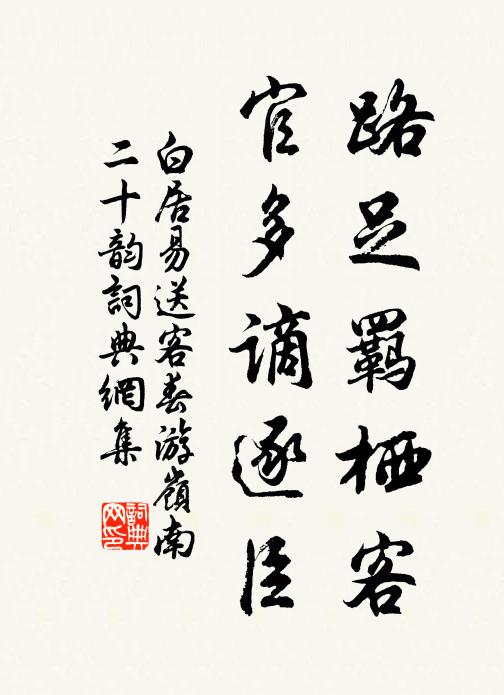 路足羁栖客
官多谪逐臣
白居易送客春游嶺南
二十韵詞典網集
詞典
网印